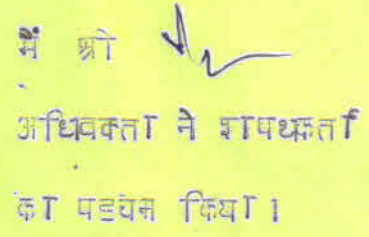 मैं श्री
अधिवक्ता ने शपथकर्ता
का पहचान किया।